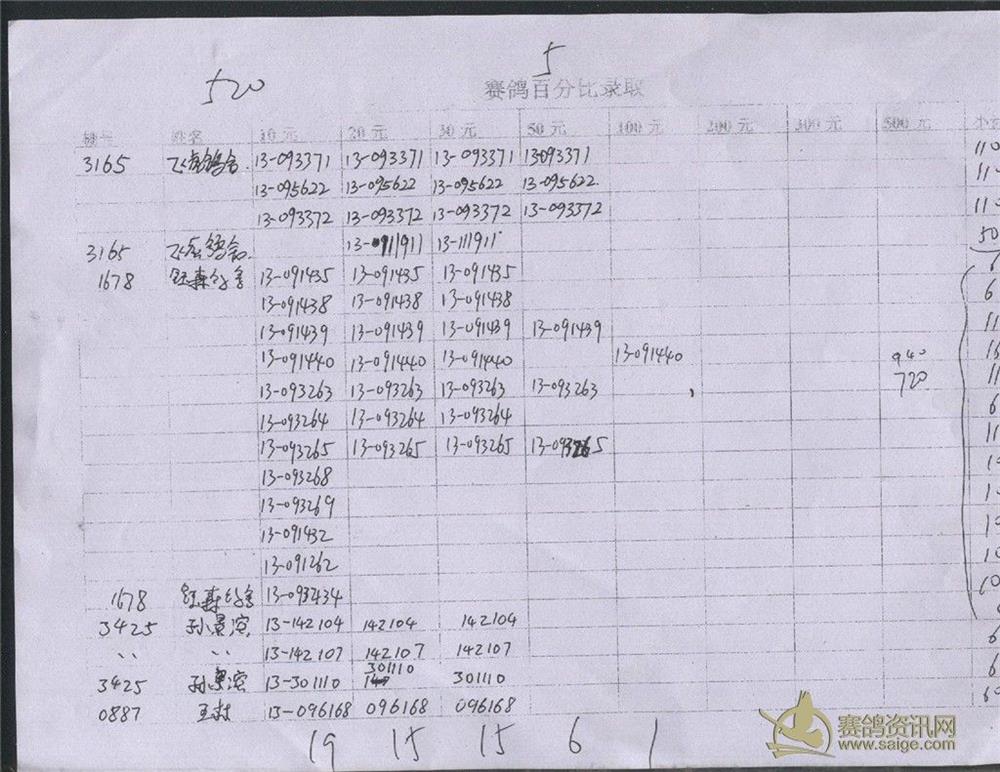 520 5
赛鸽百分比录取
棚号 姓名 10元 20元 30元 50元 100元 200元 300元 500元
3165 飞虎鸽舍 13-093371 13-093371 13-093371 13-093371 110
13-095622 13-095622 13-095622 13-095622 11
13-093372 13-093372 13-093372 13-093372 110
3165 飞虎鸽舍 13-0911911 13-111911 50
1678 13-091435 13-091435 13-091435 6
13-091438 13-091438 13-091438 6
13-091439 13-091439 13-091439 13-091439 11
13-091440 13-091440 13-091440 13-091440 940
13-093263 13-093263 13-093263 13-093263 720 11
13-093264 13-093264 13-093264 6
13-093265 13-093265 13-093265 13-093265 11
13-093268
13-093269
13-091432
13-091262
1678 13-093434
3425 孙景滨 13-142104 142104 142104
〃 〃 13-142107 142107 142107 6
3425 孙景滨 13-301110 301110 301110 6
0887 13-096168 096168 096168
19 15 15 6 1
赛鸽资讯网
www.saige.com